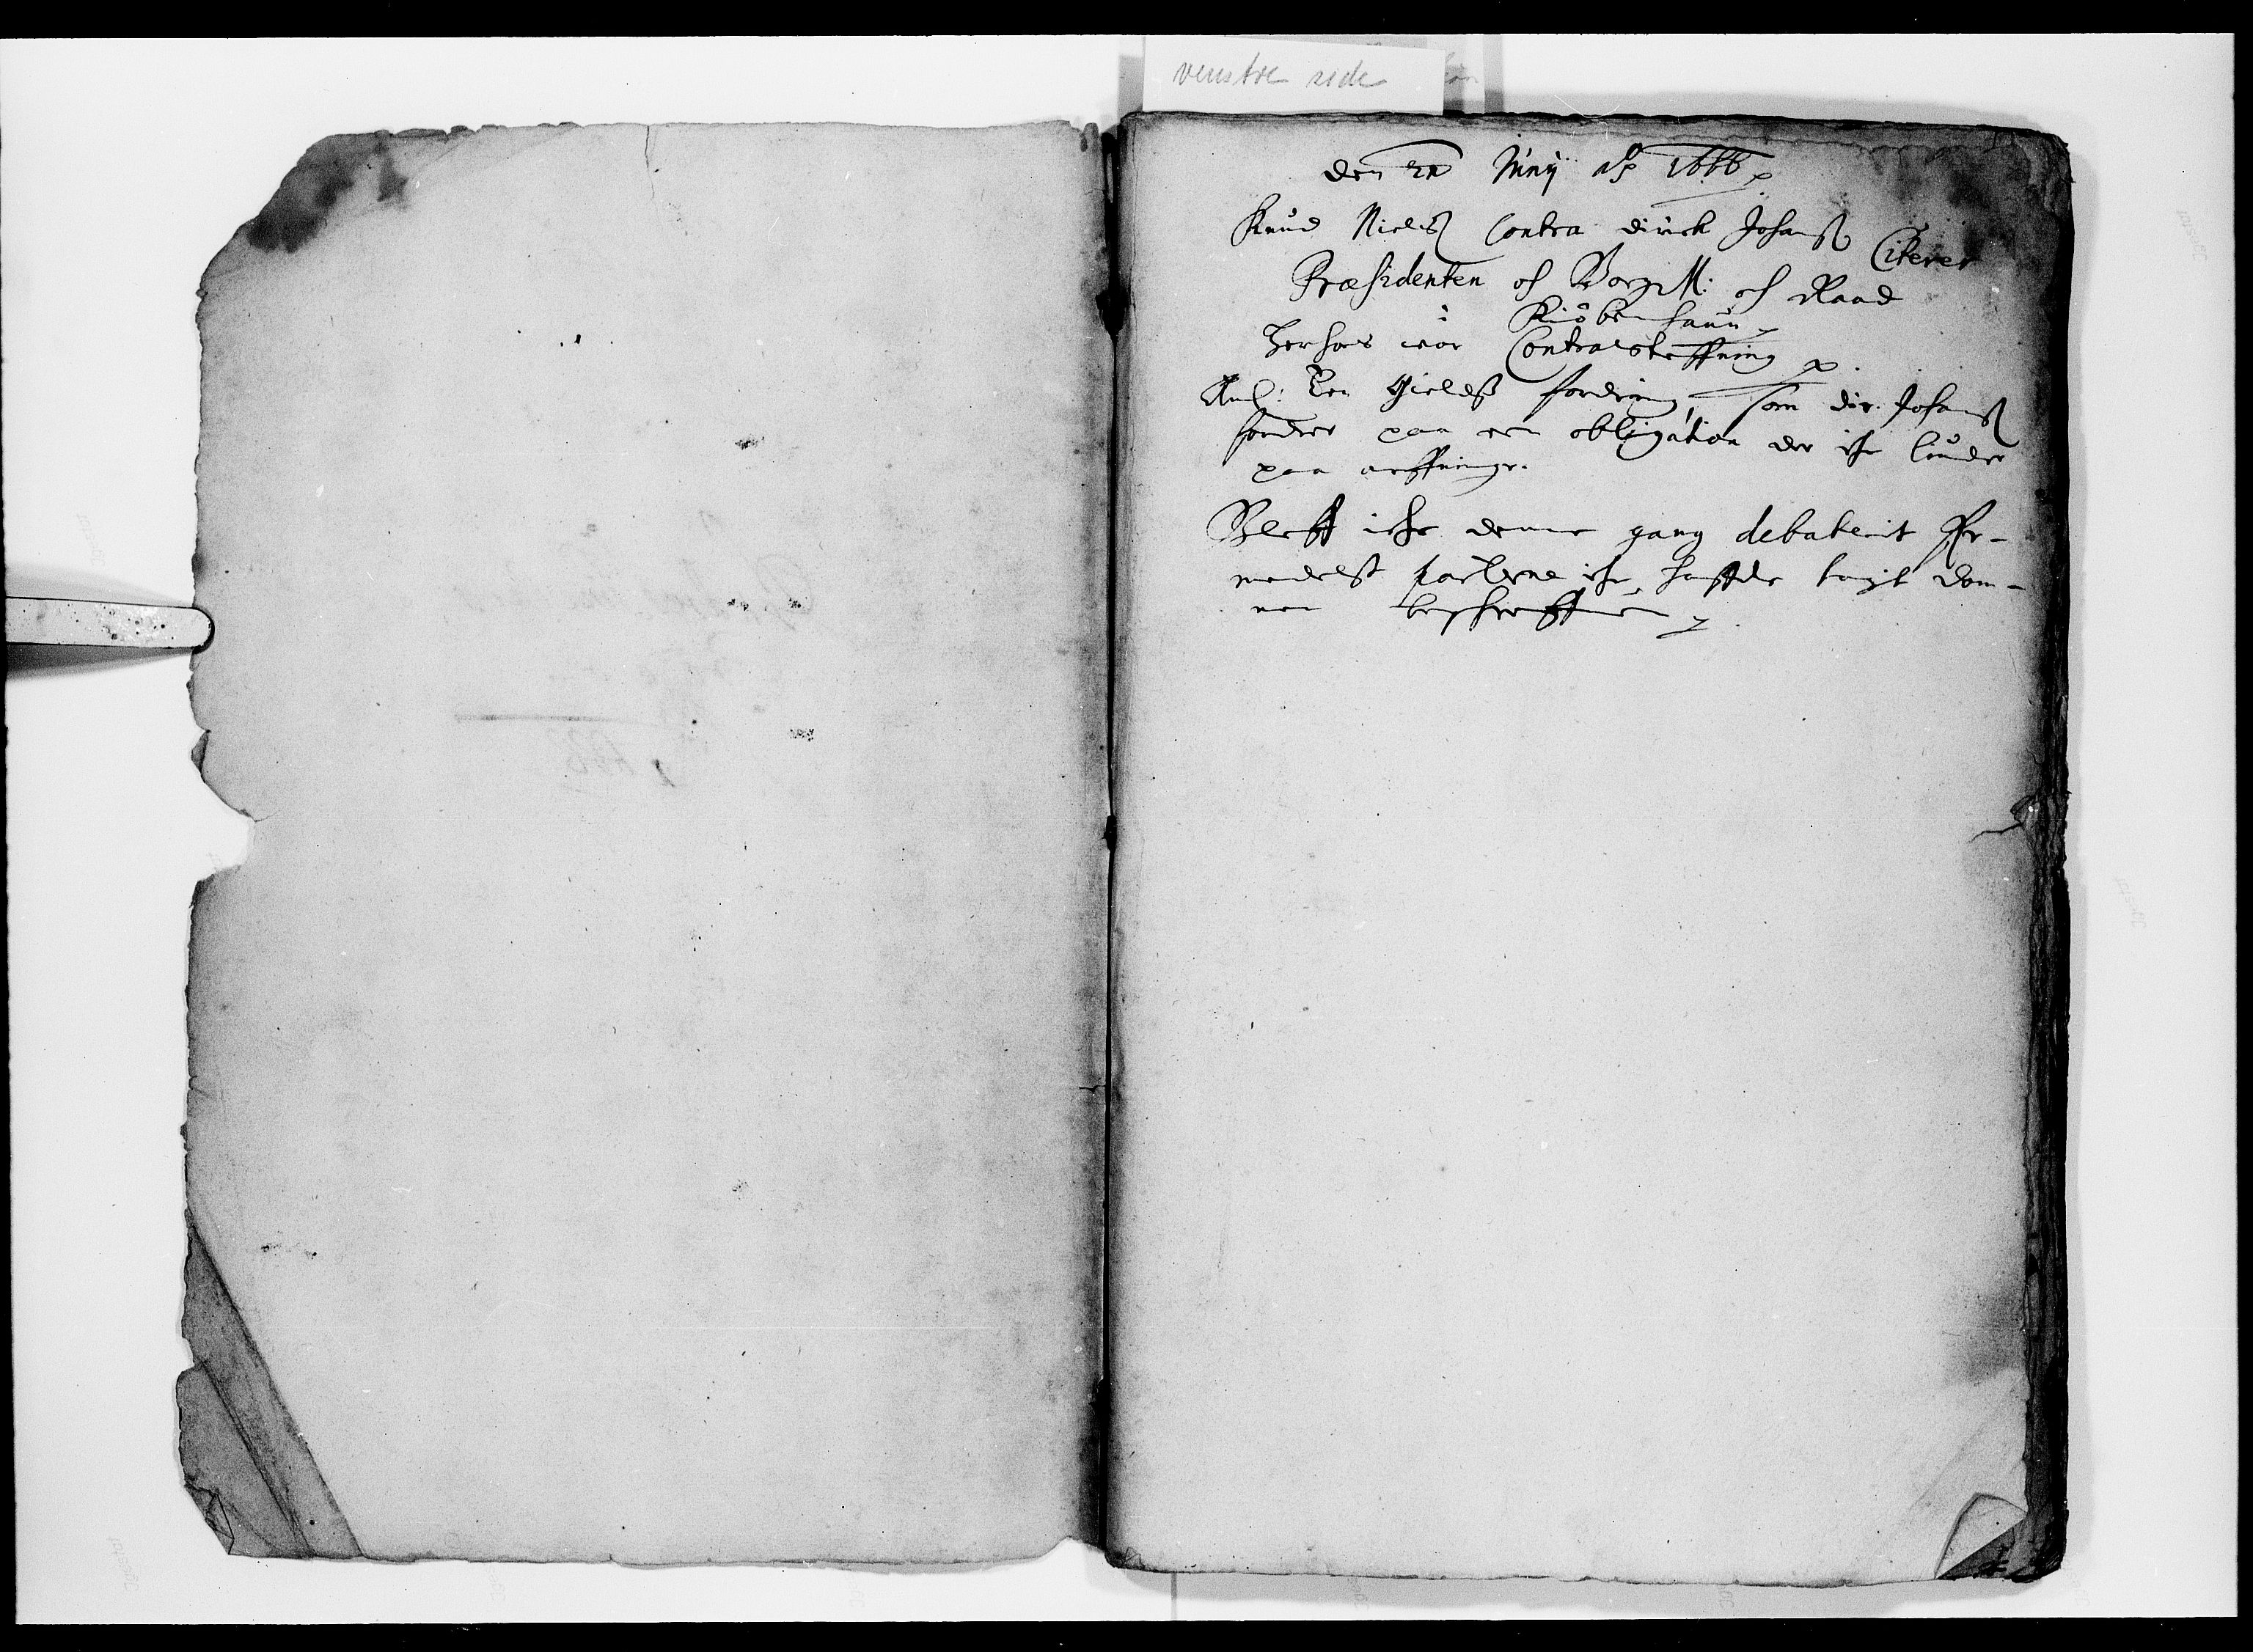 venstre side
den 21 Maij Ao 1666
Knud Nielsß Contra dirich Johansß Citerer
Præsidenten oc BorgM: oc Raad
i Kiøbenhaun
herhos wor Contrasteffning
Anl: Een Gieldß fordring, som dir. Johansß
fordrer paa een obligation der iche liuder
paa arffuinge.
Bleff iche denne gang debaterit For-
medelst parterne iche haffde tagit dom-
men beschreffuen